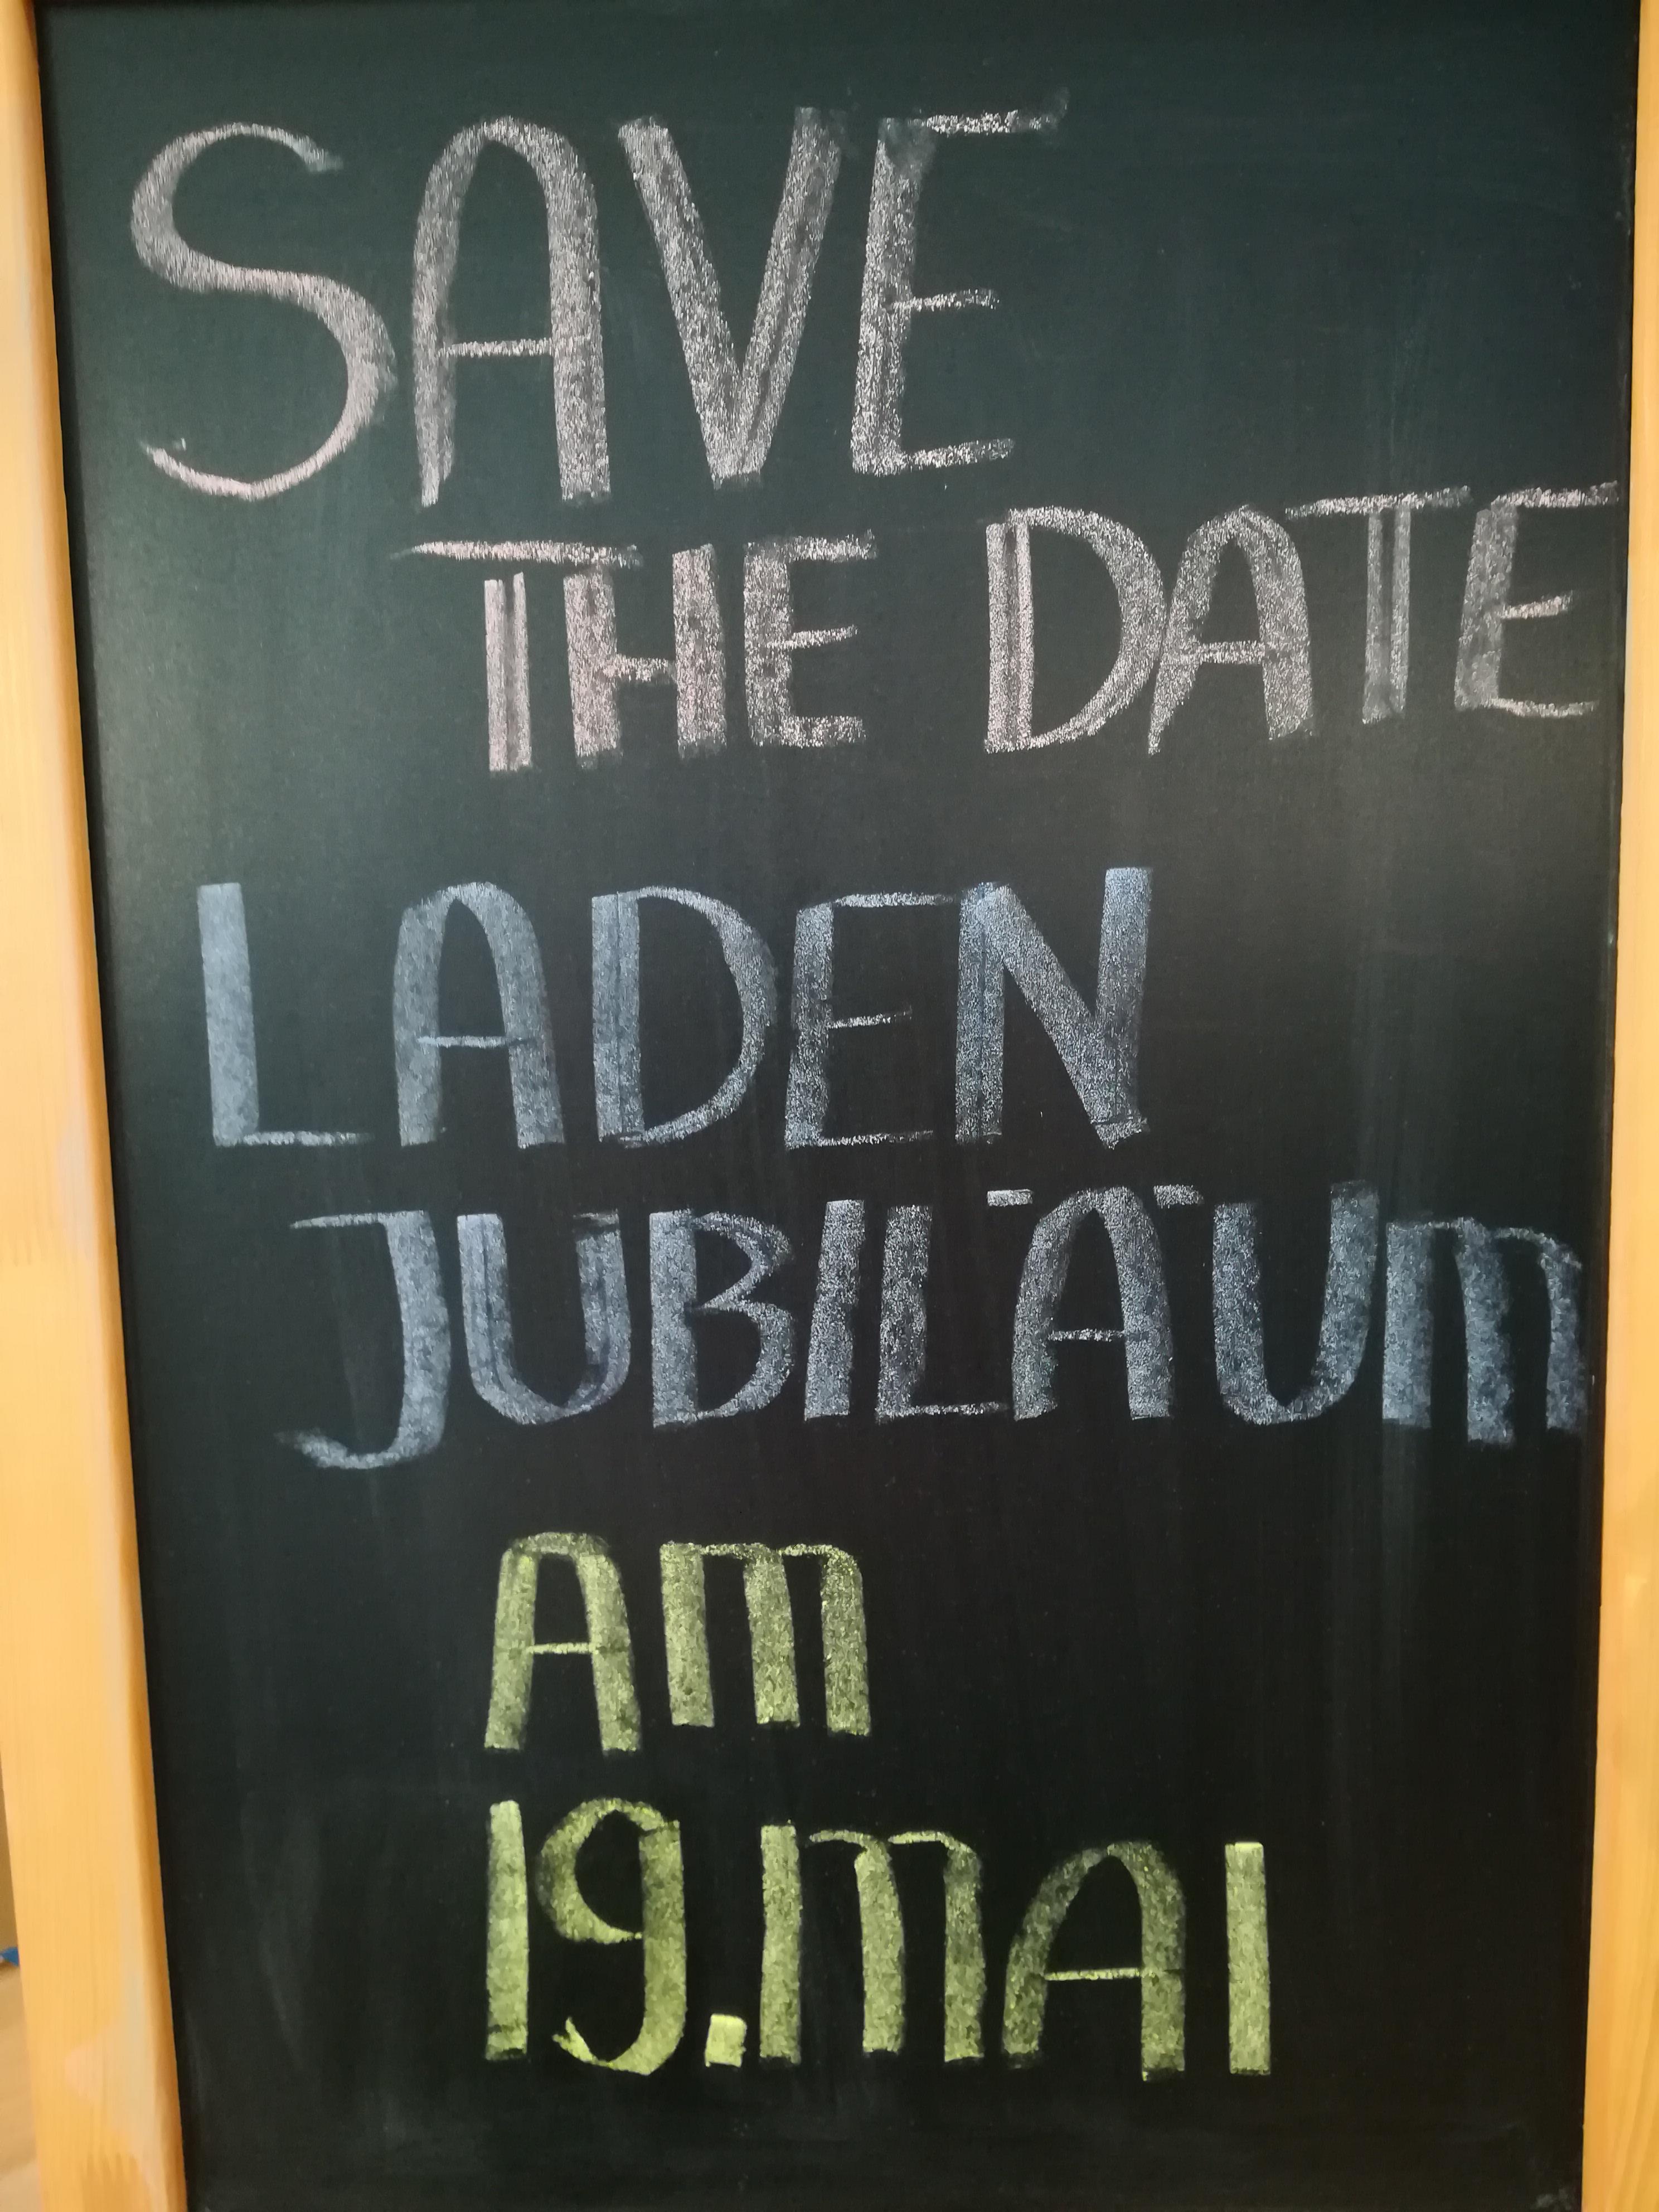 SAVE
THE DATE
LADEN
JUBILÄUM
AM
19. MAI